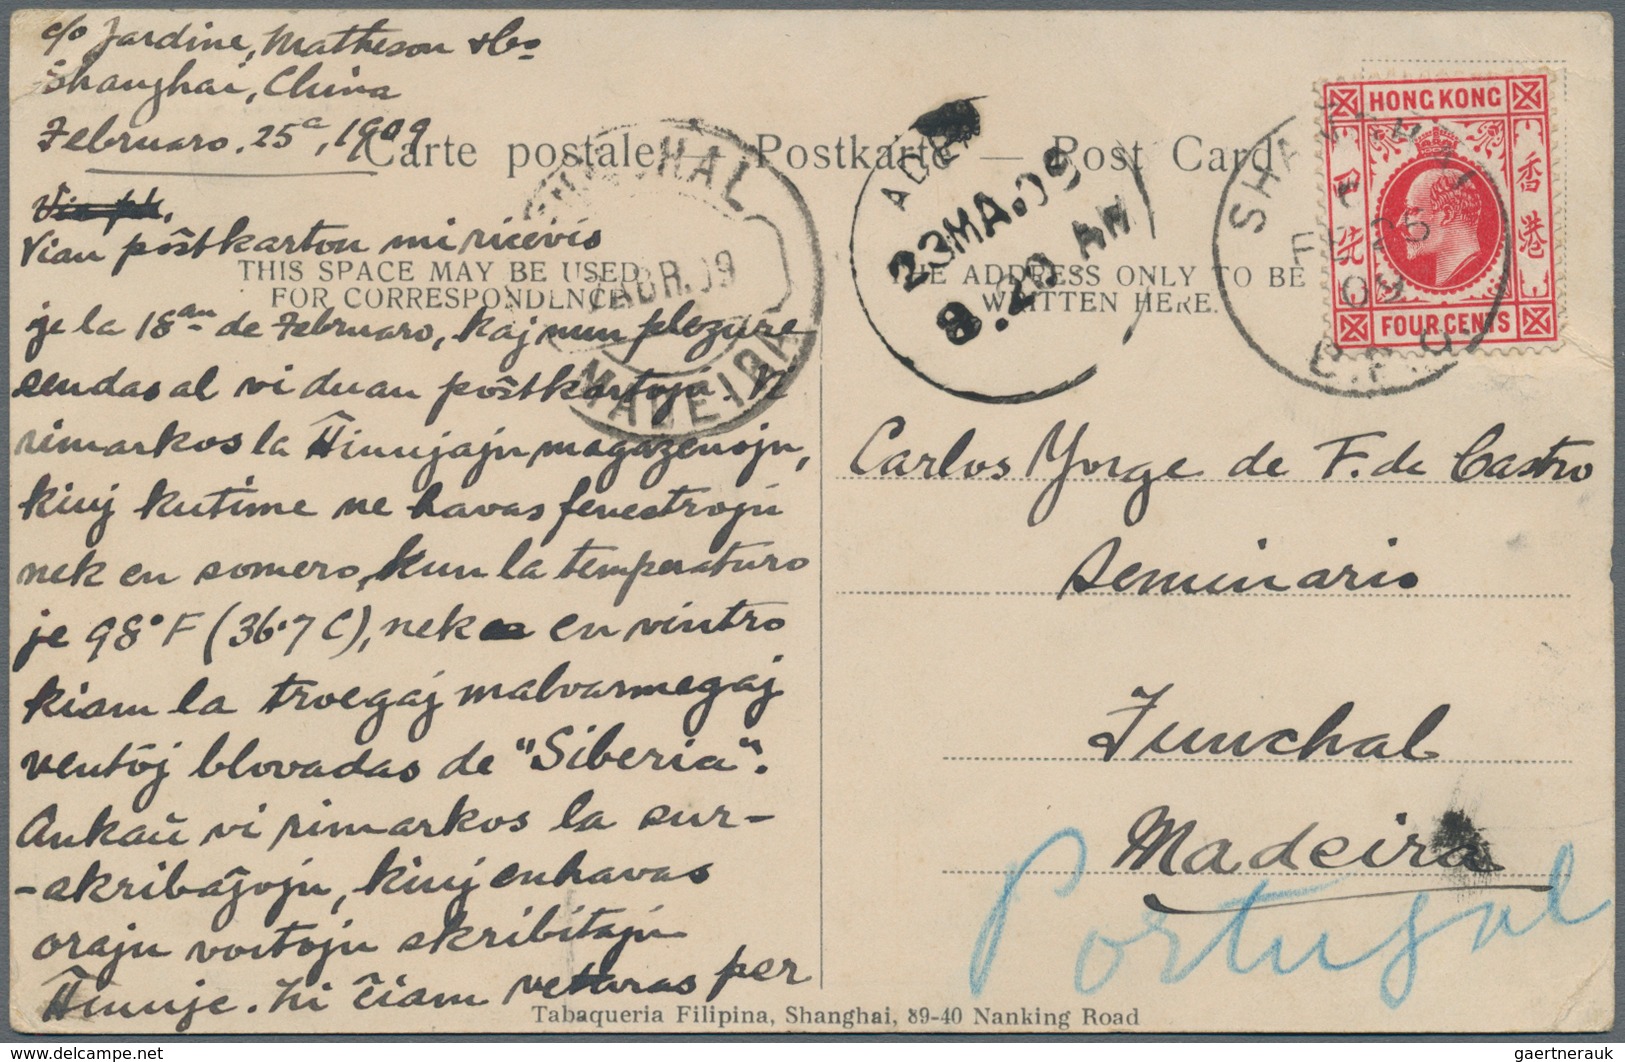 c/o Jardine, Matheson & Co
Shanghai, China
Februaro. 25a, 1909
Carte postale — Postkarte — Post Card
Vian pôstkarton mi ricevis
THIS SPACE MAY BE USED
FOR CORRESPONDENCE
je la 18an de Februaro, kaj nun plezure
sendas al vi duan pôstkartoju. Ni
rimarkos la Ĥinujajn magazenojn,
kiuj kutime ne havas fenestrojn
nek en somero, kun la temperaturo
je 98°F (36.7 C), nek en vintro
kiam la troegaj malvarmegaj
ventôj blovadas de "Siberia".
Ankaŭ vi rimarkos la sur-
-skribaĵojn, kiuj enhavas
orajn vortojn skribitajn
Ĥinuje. Ni ĉiam veturas per
FUNCHAL
ABR. 09
MADEIRA
ADEN
23MA.09
8.20 AM
THE ADDRESS ONLY TO BE
WRITTEN HERE.
SHANGHAI
FE 25
09
B.P.O.
HONG KONG
香港
FOUR CENTS
Carlos Yorge de F. de Castro
Seminario
Funchal
Madeira
Portugal
Tabaqueria Filipina, Shanghai, 89-40 Nanking Road
gaertnerauk
delcampe.net